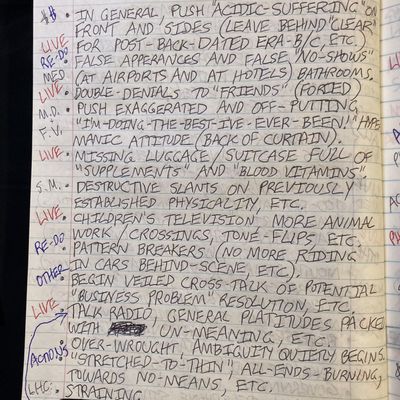 • IN GENERAL, PUSH "ACIDIC-SUFFERING" ON
FRONT AND SIDES (LEAVE BEHIND "CLEAR"
LIVE FOR POST-BACK-DATED ERA-B/C, ETC.)
RE-DO • FALSE APPERANCES AND FALSE "NO-SHOWS"
MED (AT AIRPORTS AND AT HOTELS) BATHROOMS.
LIVE • DOUBLE-DENIALS TO "FRIENDS" (FORIED)
M.D. • PUSH EXAGGERATED AND OFF-PUTTING
F.V. "I'M-DOING-THE-BEST-IVE-EVER-BEEN!" HYPE
MANIC ATTITUDE (BACK OF CURTAIN).
LIVE • MISSING LUGGAGE/SUITCASE FULL OF
"SUPPLEMENTS" AND "BLOOD VITAMINS".
S.M. • DESTRUCTIVE SLANTS ON PREVIOUSLY
ESTABLISHED PHYSICALITY, ETC.
LIVE • CHILDREN'S TELEVISION MORE ANIMAL
RE-DO WORK/CROSSINGS, TONE-FLIPS, ETC.
• PATTERN BREAKERS (NO MORE RIDING
IN CARS BEHIND-SCENE, ETC).
OTHER • BEGIN VEILED CROSS-TALK OF POTENTIAL
"BUSINESS PROBLEM" RESOLUTION, ETC.
LIVE • TALK RADIO, GENERAL PLATITUDES PACKED
WITH UN-MEANING, ETC.
ACTIONS • OVER-WROUGHT, AMBIGUITY QUIETLY BEGINS.
• "STRETCHED-TO-THIN", ALL-ENDS-BURNING,
TOWARDS NO-MEANS, ETC.
LHC: • STRAINING